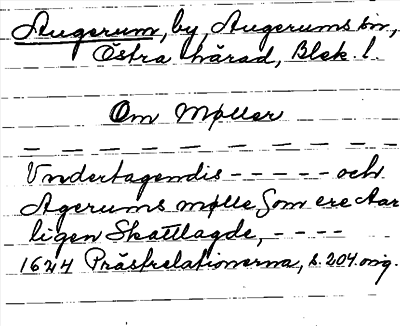 Augerum, by, Augerums sn,
Östra härad, Blek. l.
Om Møller
— — — — — — — — — —
Vndertagendis - - - - - och
Agerums mølle Som ere Aar
ligen Skattlagde, - - - -
1624 Prästrelationerna, s. 204 orig.